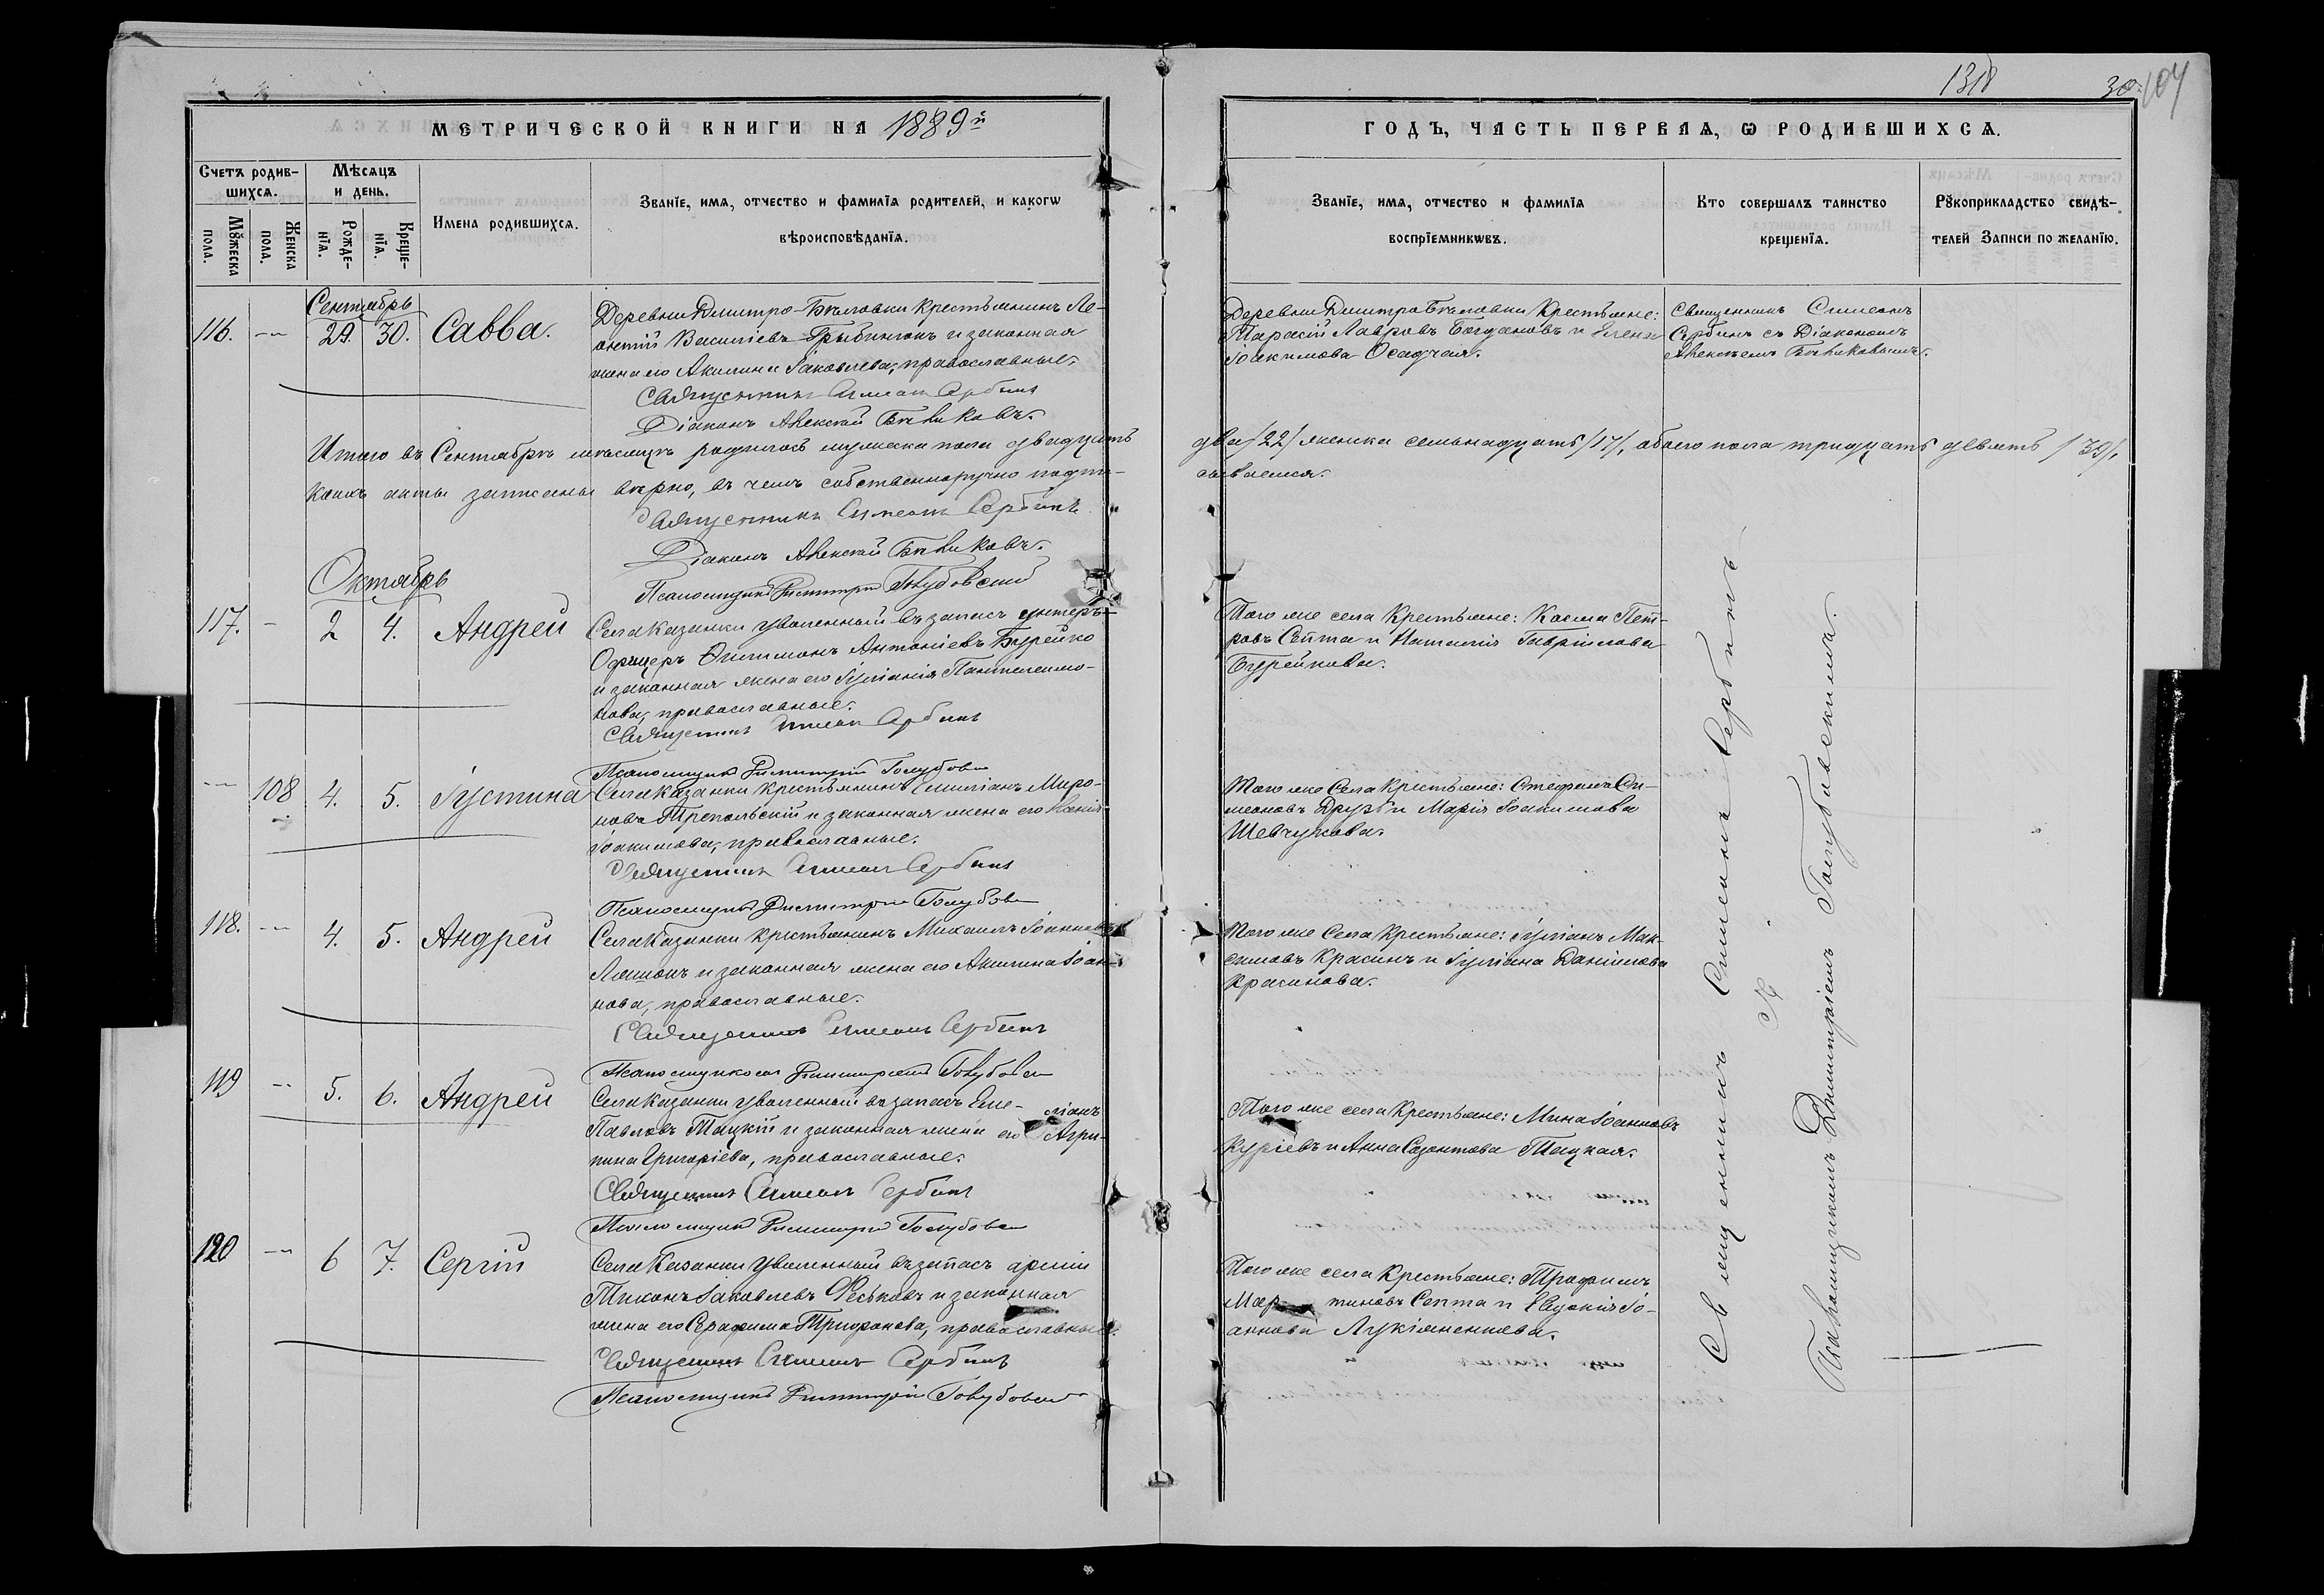 1318
30. 104
МЕТРИЧЕСКОЙ КНИГИ НА 1889й
ГОДЪ, ЧАСТЬ ПЕРВАЯ, Ѡ РОДИВШИХСЯ.
Счетъ родив-
шихся.
Мꙋжеска
пола.
Женска
пола.
Мѣсяцъ
и день.
Рожде-
нїя.
Креще-
нїя.
Имена родившихся.
Званїе, имя, отчество и фамилїя родителей, и какогѡ
вѣроисповѣданїя.
Званїе, имя, отчество и фамилїя
воспрїемникѡвъ.
Кто совершалъ таинство
крещенїя.
Рꙋкоприкладство свидѣ-
телей записи по желанїю.
Сентябрь
116. — 29. 30. Савва.
Деревни Дмитро-Бѣловки крестьянинъ Ле-
онтій Василіевъ Грыбинюкъ и законная
жена его Акилина Іаковлева, православные.
Священникъ Симеонъ Сербинъ
Діаконъ Алексѣй Бѣликовъ.
Деревни Дмитро Бѣловки крестьяне:
Тарасій Лавровъ Богдановъ и Елена
Іоакимова Осадчая.
Священникъ Симеонъ
Сербинъ съ Діакономъ
Алексѣемъ Бѣликовымъ.
Итого въ Сентябрѣ мѣсяцѣ родилось мужеска пола двадцать
два /22/ женска семьнадцать /17/, обоего пола тридцать девять /39/,
коихъ акты записаны вѣрно, въ чемъ собственноручно подпи-
сываемся.
Священникъ Симеонъ Сербинъ
Діаконъ Алексѣй Бѣликовъ.
Псаломщикъ Димитрій Голубовскій
Октябрь
117. - 2 4. Андрей
Села Казанки уволенный въ запасъ унтеръ-
Офицеръ Филимонъ Антоніевъ Бурейко
и законная жена его Іуліанія Пантелеимо-
нова, православные.
Священникъ Симеонъ Сербинъ
Псаломщикъ Димитрій Голубовс
Того же села крестьяне: Косма Пет-
ровъ Септа и Наталія Гавріилова
Бурейкова.
— 108 4. 5. Іустина
Села Казанки крестьянинъ Емиліанъ Миро-
новъ Трепольскій и законная жена его
Іоакимова, православные.
Священникъ Симеонъ Сербинъ
Псаломщикъ Димитрій Голубовс
Того же Села крестьяне: Стефанъ Си-
меоновъ Друзь и Марія Іоакимова
Шевчукова.
118. — 4. 5. Андрей
Села Казанки крестьянинъ Михаилъ Іоанновъ
Ляшокъ и законная жена его Акилина Іоан-
нова, православные.
Священникъ Симеонъ Сербинъ
Псаломщикъ Димитрій Голубовс
Того же Села крестьяне: Іуліанъ Мак-
симовъ Красинъ и Іуліана Даніилова
Красинова.
119 — 5. 6. Андрей
Села Казанки уволенный въ запасъ Еме-
ліанъ
Павловъ Тацкій и законная жена его Агри-
пина Григоріева, православные.
Священникъ Симеонъ Сербинъ
Псаломщикъ Димитрій Голубовс
Того же села крестьяне: Мина Іоанновъ
Куріевъ и Анна Созонтова Тацкая.
120 — 6 7. Сергій
Села Казанки уволенный въ запасъ арміи
Тихонъ Іаковлевъ Феськовъ и законная
жена его Серафима Трифонова, православные.
Священникъ Симеонъ Сербинъ
Псаломщикъ Димитрій Голубовс
Того же села крестьяне: Трофимъ
Мар тиновъ Септа и Евдокія Іо-
аннова Лукіяненкова.
Священникъ Симеонъ Сербинъ
съ
Псаломщикомъ Димитріемъ Голубовскимъ.